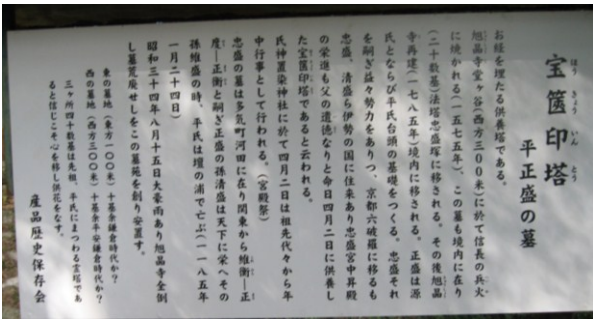 ほうきょういんとう
宝篋印塔
平正盛の墓
お経を埋たる供養塔である。
旭晶寺堂ヶ谷(西方三〇〇米)に於て信長の兵火
に焼かれる(一五七五年)、この墓も境内に在り
(二十数基)法塔忠盛塚に移される。その後旭晶
寺再建(一七八五年)境内に移される。正盛は源
氏とならび平氏台頭の基礎をつくる。忠盛それ
を嗣ぎ益々勢力をありつ、京都六破羅に移るも
忠盛、清盛ら伊勢の国に住来あり忠盛宮中昇殿
の栄進も父の遺徳なりと命日四月二日に供養し
た宝篋印塔であると云われる。
氏神置染神社に於て四月二日は祖先代々から年
中行事として行われる。(宮殿祭)
忠盛の墓は多気町河田に在り関東から維衡―正
度―正衡と嗣ぎ正盛の孫清盛は天下に栄へその
孫維盛の時、平氏は壇の浦で亡ぶ(一一八五年
一月二十四日)
昭和三十四年八月十五日大豪雨あり旭晶寺全倒
し墓荒廃せしをこの墓苑を創り安置す。
東の墓地(東方一〇〇米)十基余鎌倉時代か?
西の墓地(西方三〇〇米)十基余平安鎌倉時代か?
三ヶ所四十数基は先祖、平氏にまつわる霊塔であ
ると信じこそ心を移し供花をなす。
産品歴史保存会